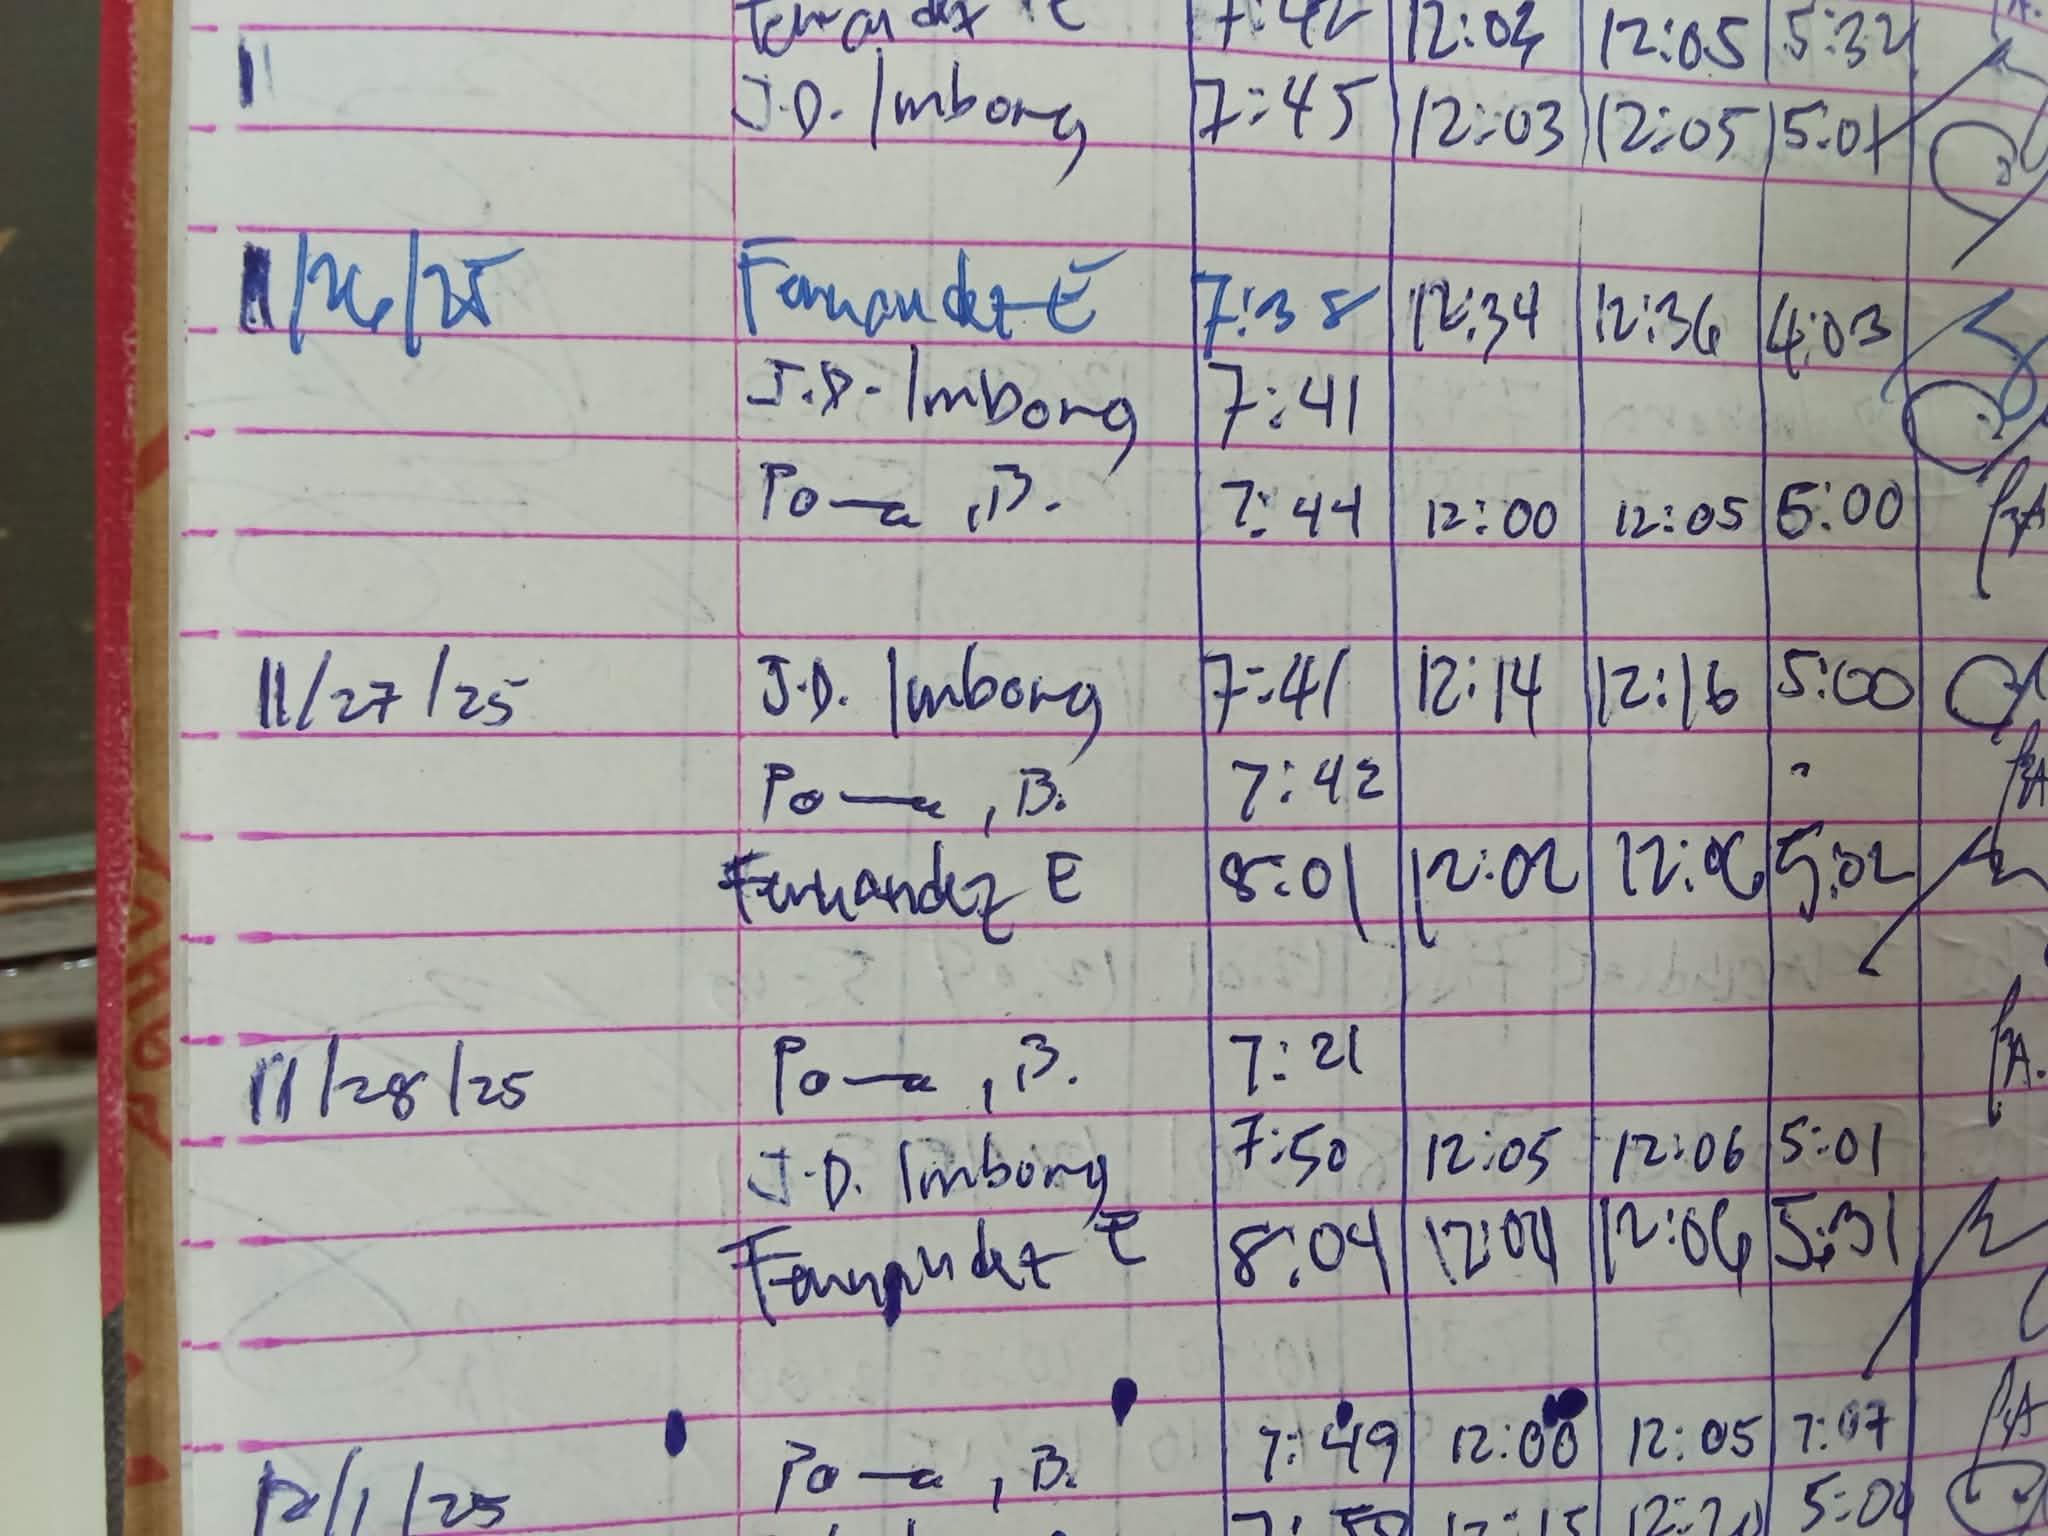 Fernandez E 7:42 12:04 12:05 5:32
11 J.D. Imbong 7:45 12:03 12:05 5:01
11/26/25 Fernandez E 7:38 12:34 12:36 4:03
J.D. Imbong 7:41
Po—a, B. 7:44 12:00 12:05 5:00
11/27/25 J.D. Imbong 7:41 12:14 12:16 5:00
Po—a, B. 7:42
Fernandez E 8:01 12:02 12:06 5:02
11/28/25 Po—a, B. 7:21
J.D. Imbong 7:50 12:05 12:06 5:01
Fernandez E 8:04 12:04 12:06 5:31
12/1/25 Po—a, B. 7:49 12:00 12:05 7:07
7:50 12:15 12:20 5:00